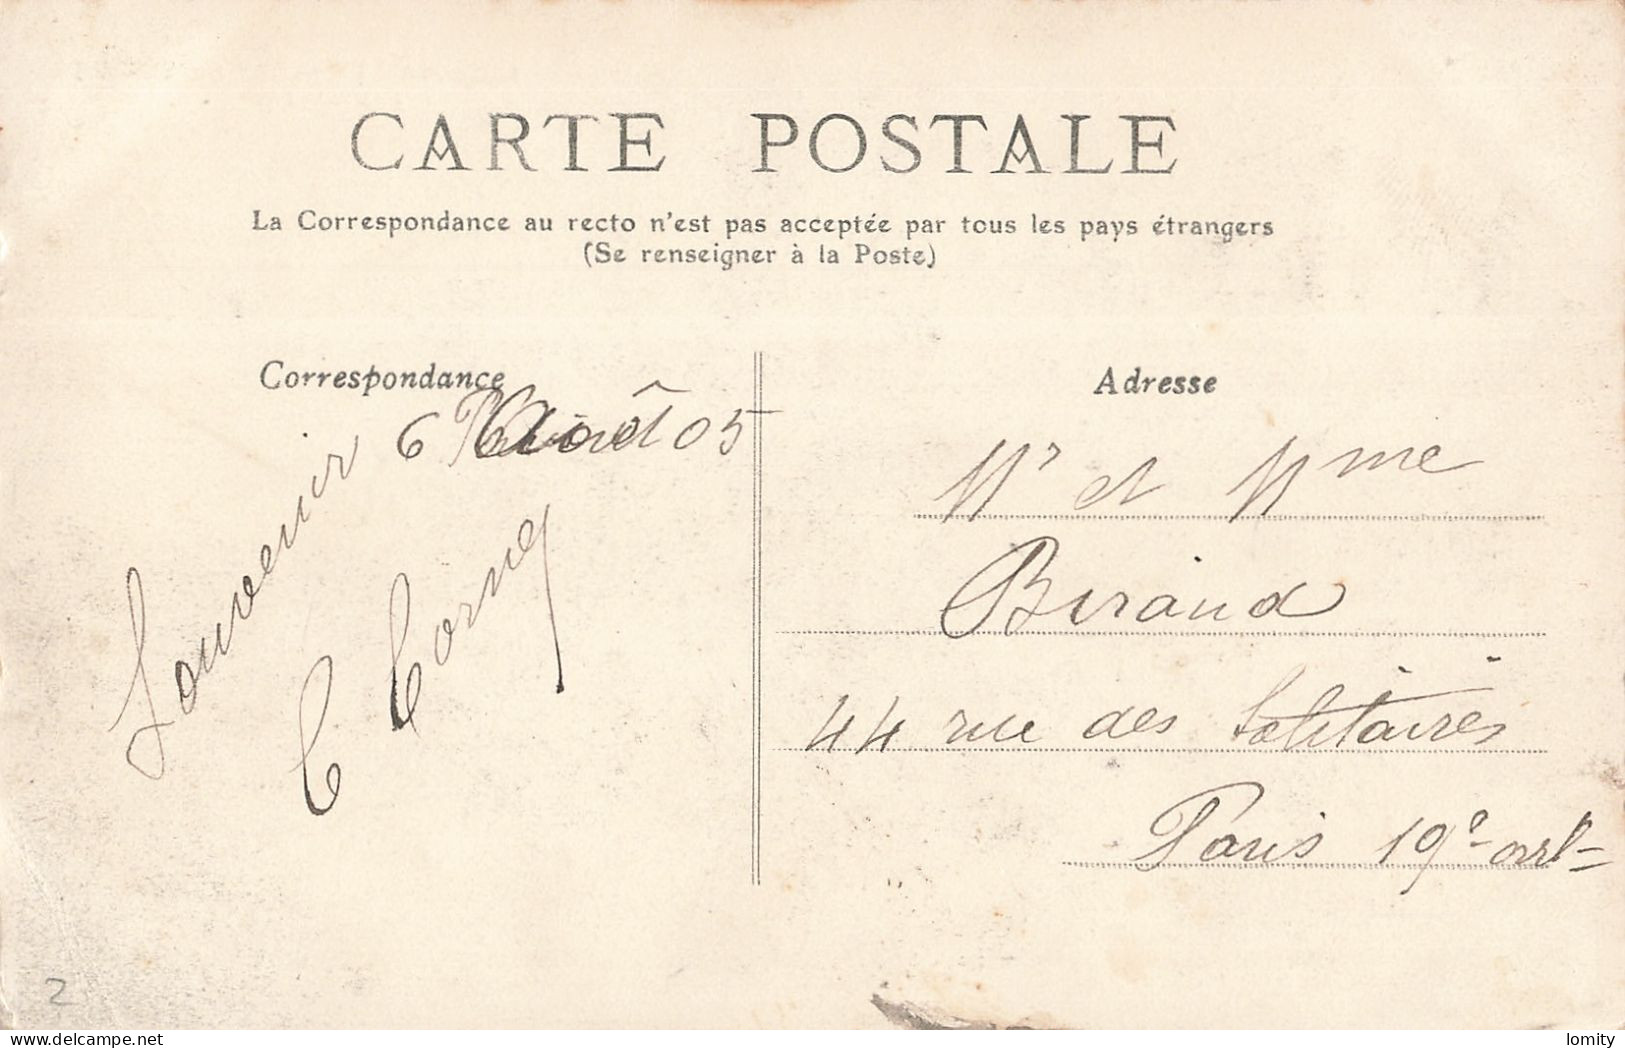 CARTE POSTALE
La Correspondance au recto n'est pas acceptée par tous les pays étrangers
(Se renseigner à la Poste)
Correspondance
6 Août 05
Souvenir
C
Adresse
Mr et Mme
Beraud
44 rue des Solitaires
Paris 19e arrt
2
lomity